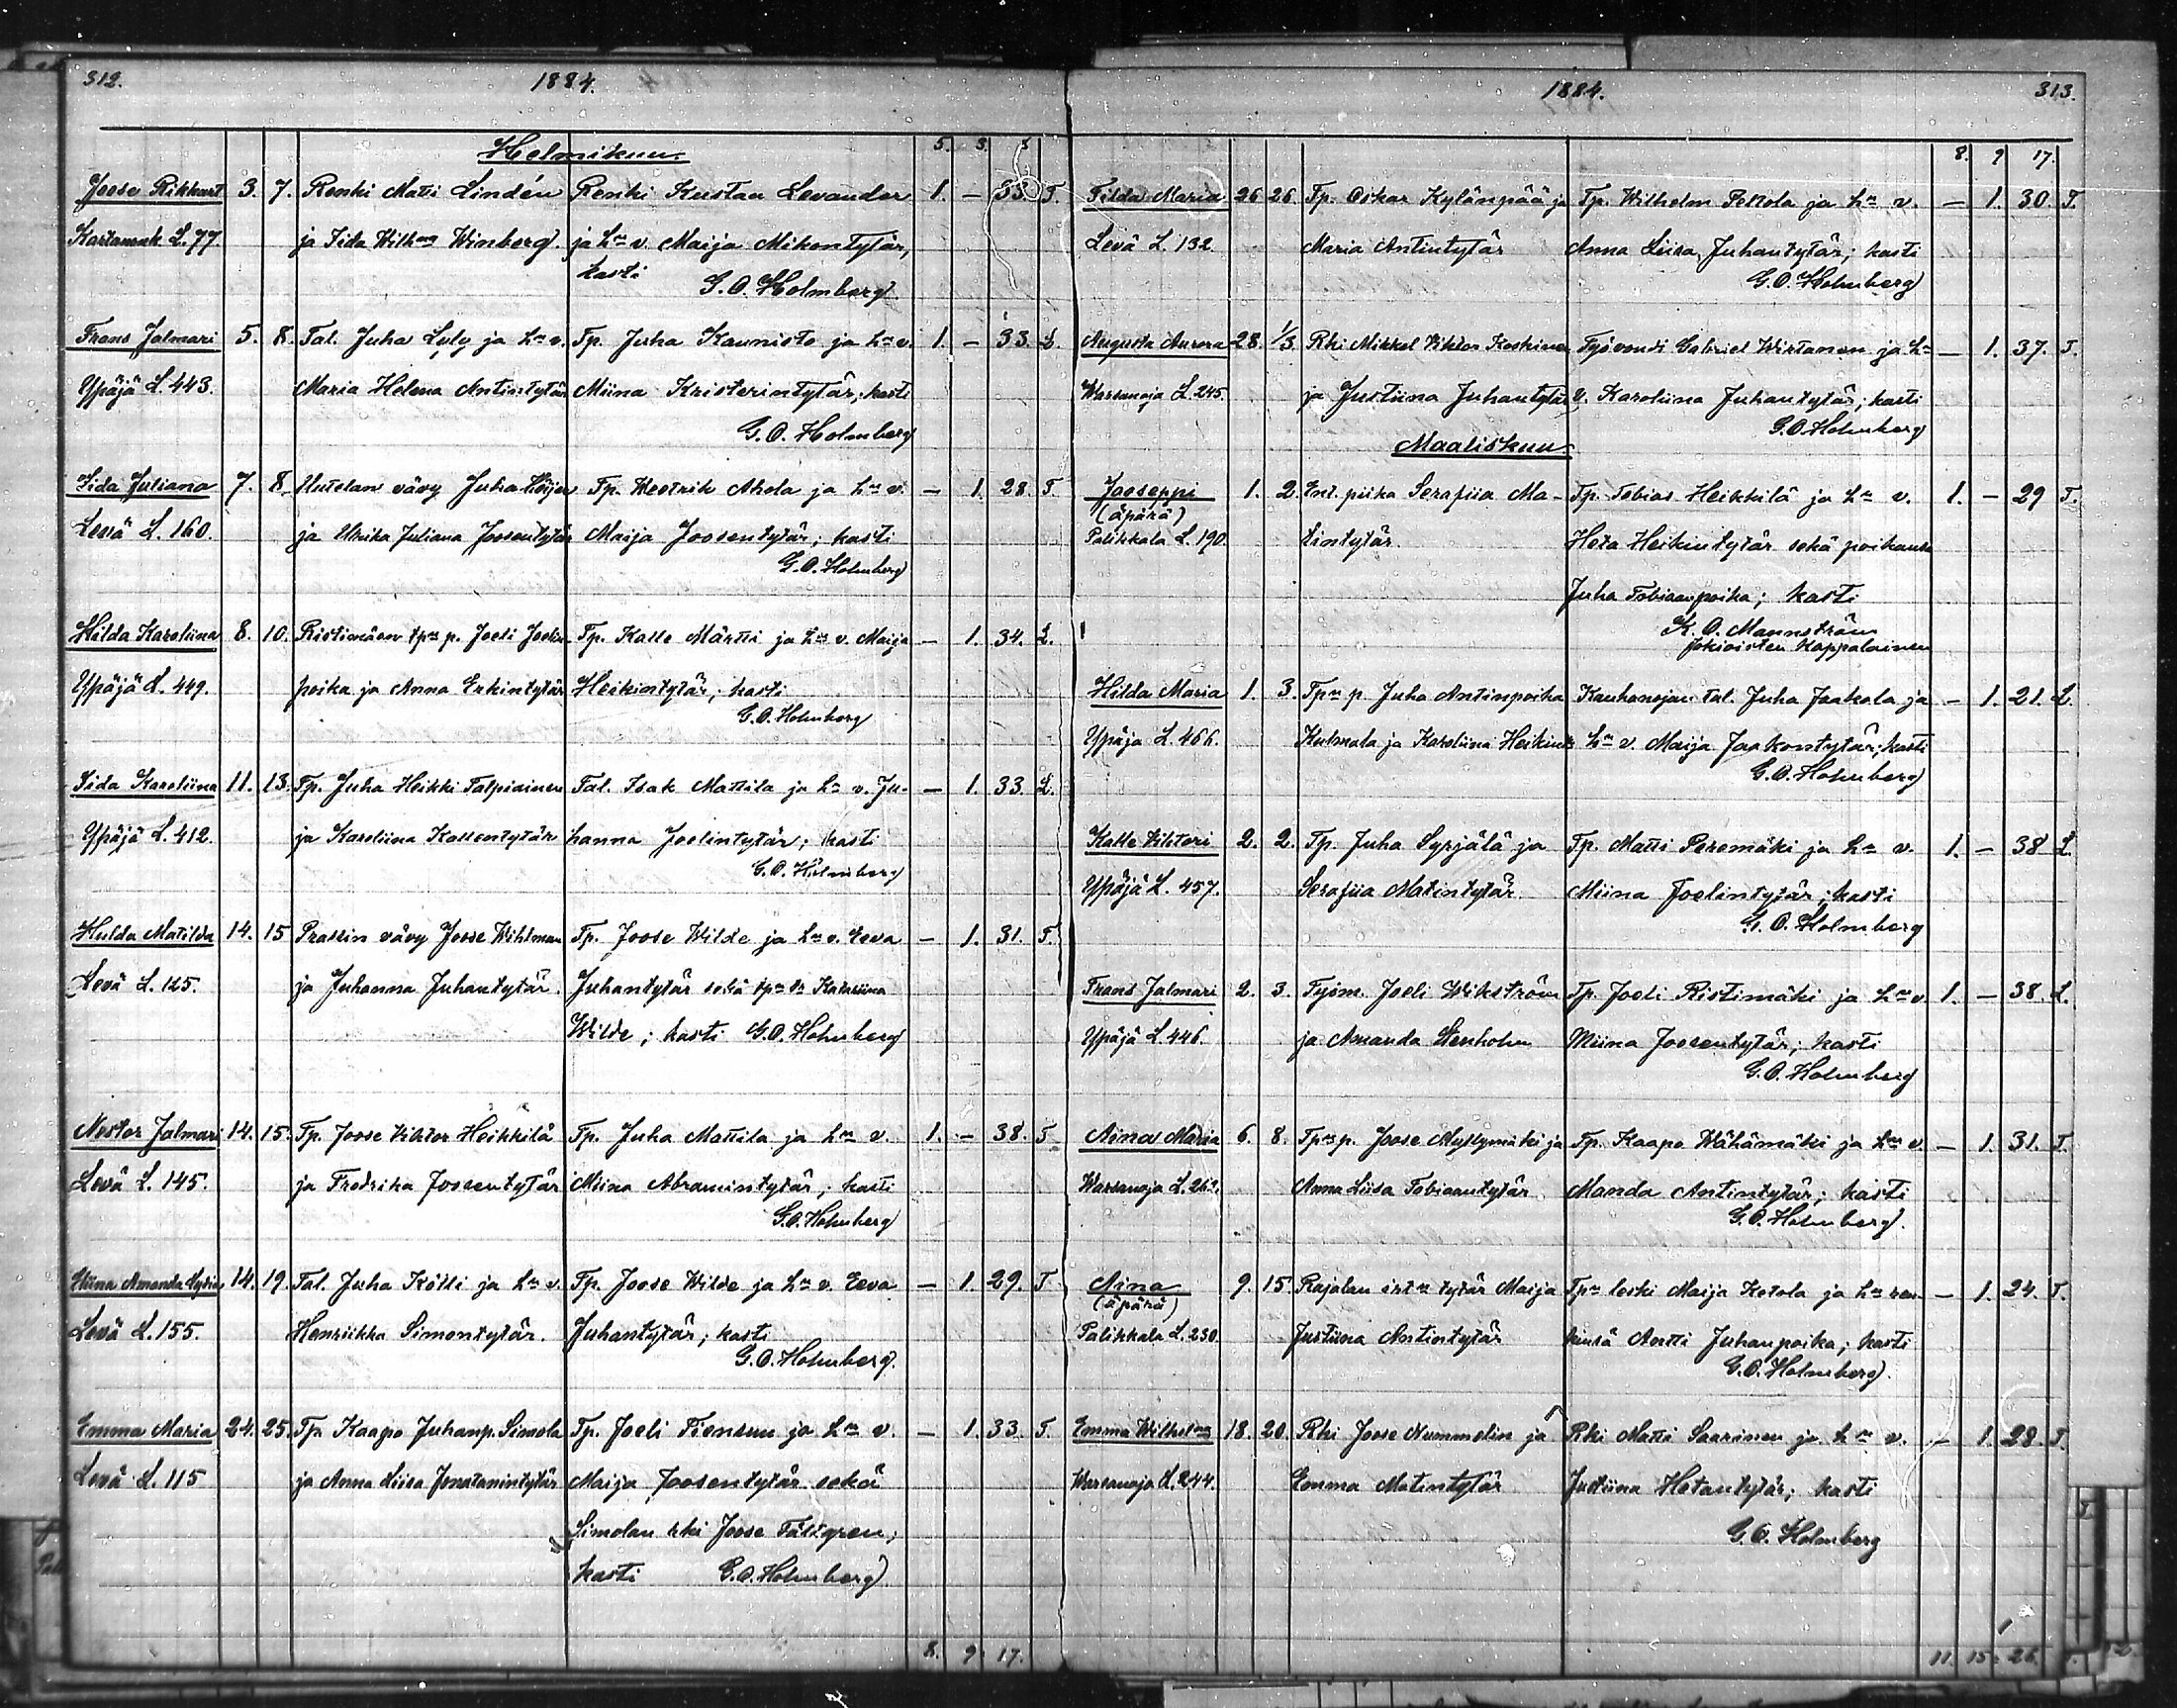 312. 1884.
Helmikuu. 5. 3. 8
Joose Rikhart 3. 7. Renki Matti Lindén Renki Kustaa Levander 1. — 33. T.
L. 77 ja Iida Wilhna Winberg. ja hän v. Maija Mikontytär,
kasti G. O. Holmberg.
Frans Jalmari 5. 8. Tal. Juha Luly ja hän v. Tp. Juha Kaunisto ja hän v. 1. — 33. L.
Ypäjä L. 443. Maria Helena Antintytär Miina Kristerintytär; kasti
G. O. Holmberg
Iida Juliana 7. 8. vävy Juha Tp. Westrik Ahola ja hän v. — 1. 28. T
Levä L. 160. ja Ulrika Juliana Joosentytär Maija Joosentytär; kasti
G. O. Holmberg
Hilda Karoliina 8. 10. Ristimäen tpn p. Joeli Tp. Kalle Märtti ja hän v. Maija — 1. 34. L.
Ypäjä L. 449. poika ja Anna Erkintytär Heikintytär; kasti
G. O. Holmberg
Iida Karoliina 11. 13. Tp. Juha Heikki Talpiainen Tal. Isak Mattila ja hän v. Ju- — 1. 33. L.
Ypäjä L. 412. ja Karoliina Kallentytär hanna Joelintytär; kasti
G. O. Holmberg
Hulda Matilda 14. 15 vävy Joose Wihlman Tp. Joose Wilde ja hän v. Eeva — 1. 31. T.
Levä L. 125. ja Juhanna Juhantytär. Juhantytär sekä tpn tr Katariina
Wilde; kasti G. O. Holmberg
Nestor Jalmari 14. 15. Tp. Joose Viktor Heikkilä Tp. Juha Mattila ja hän v. 1. — 38. T
Levä L. 145. ja Fredrika Joosentytär Miina Abramintytär; kasti
G. O. Holmberg
Miina Amanda Lydia 14. 19. Tal. Juha Kölli ja hän v. Tp. Joose Wilde ja hän v. Eeva — 1. 29. T
Levä L. 155. Henriikka Simontytär. Juhantytär; kasti
G. O. Holmberg.
Emma Maria 24. 25. Tp. Kaapo Juhanp. Simola Tp. Joeli Tiensuu ja hän v. — 1. 33. T.
Levä L. 115 ja Anna Liisa Jonatanintytär Maija Joosentytär sekä
Simolan rki Joose Fältgren;
kasti G. O. Holmberg
8. 9. 17.
1884. 313.
8. 9 17.
Tilda Maria 26 26. Tp. Oskar Kylänpää ja Tp. Wilhelm Pettola ja hän v. — 1. 30. T.
Levä L. 132. Maria Antintytär Anna Liisa Juhantytär; kasti
G. O. Holmberg
Augusta Aurora 28. 1/3. Rki Mikkel Viktor Koskinen Työvouti Gabriel Wirtanen ja hän — 1. 37. T.
Warsanoja L. 245. ja Justiina Juhantytär v. Karoliina Juhantytär; kasti
G. O. Holmberg
Maaliskuu
Jooseppi 1. 2. Ent. piika Serafiia Ma- Tp. Tobias Heikkilä ja hän v. 1. — 29 T.
(äpärä)
Palikkala L. 190. tintytär. Heta Heikintytär sekä poikansa
Juha Tobiaanpoika; kasti
K. O. Mannström
Jokioisten Kappalainen
Hilda Maria 1. 3. Tpn p. Juha Antinpoika Kauhanojan tal. Juha Jaakola ja — 1. 21. L.
Ypäjä L. 466. Kulmala ja Karoliina hän v. Maija Jaakontytär; kasti
G. O. Holmberg
Kalle Vihtori 2. 2. Tp. Juha Syrjälä ja Tp. Matti Peremäki ja hän v. 1. — 38 L.
Ypäjä L. 457. Serafiia Matintytär. Miina Joelintytär; kasti
G. O. Holmberg
Frans Jalmari 2. 3. Työm. Joeli Wikström Tp. Joeli Ristimäki ja hän v. 1. — 38. L.
Ypäjä L. 446. ja Amanda Stenholm Miina Joosentytär; kasti
G. O. Holmberg
Aina Maria 6. 8. Tpn p. Joose Myllymäki ja Tp. Kaapo Wähämäki ja hän v. — 1. 31. T.
Warsanoja Anna Liisa Tobiaantytär Manda Antintytär; kasti
G. O. Holmberg.
Aina 9. 15 Rajalan tytär Maija Tpn leski Maija Ketola ja hän ren- — 1. 24. T.
(äpärä)
Palikkala L. 230. Justiina Antintytär kinsä Antti Juhanpoika; kasti
G. O. Holmberg.
Emma Wilhelma 18. 20. Rki Joose Nummelin ja Rki Matti Saarinen ja hän v. — 1. 28. T.
Warsanoja L. 244. Emma Matintytär Justiina kasti
G. O. Holmberg
11. 15. 26.